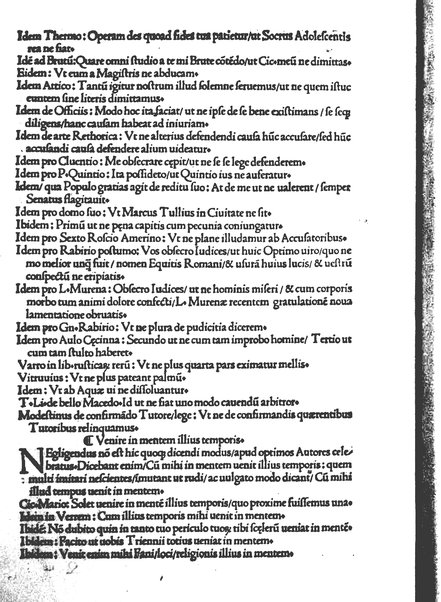 Idem Thermo: Operam des quoad fides tua patietur/ut Socrus Adolescentis
rea ne fiat•
Idē ad Brutū: Quare omni studio a te mi Brute cōtēdo/ut Cic•meū ne dimittas•
Eidem: Vt eum a Magistris ne abducam•
Idem Attico: Tantū igitur nostrum illud solemne seruemus/ut ne quem istuc
euntem sine literis dimittamus•
Idem de Officiis: Modo hoc ita faciat/ut ne ipse de se bene existimans / se seq;
diligens/hanc causam habeat ad iniuriam•
Idem de arte Rethorica: Vt ne alterius defendendi causa hūc accusare/sed hūc
accusandi causa defendere alium uideatur•
Idem pro Cluentio: Me obsecrare cępit/ut ne se se lege defenderem•
Idem pro P•Quintio: Ita possideto/ut Quintio ius ne auferatur•
Idem/ qua Populo gratias agit de reditu suo: At de me ut ne ualerent / semper
Senatus flagitauit•
Idem pro domo suo: Vt Marcus Tullius in Ciuitate ne sit•
Ibidem: Primū ut ne pęna capitis cum pecunia coniungatur•
Idem pro Sexto Roscio Amerino: Vt ne plane illudamur ab Accusatoribus•
Idem pro Rabirio postumo: Vos obsecro Iudices/ut huic Optimo uiro/quo ne
mo melior unq̄ fuit/ nomen Equitis Romani/& usurā huius lucis/ & uestrū
conspectū ne eripiatis•
Idem pro L•Murena: Obsecro Iudices/ut ne hominis miseri / & cum corporis
morbo tum animi dolore confecti/L• Murenæ recentem gratulationē noua
lamentatione obruatis•
Idem pro Gn•Rabirio: Vt ne plura de pudicitia dicerem•
Idem pro Aulo Cęcinna: Secundo ut ne cum tam improbo homine/ Tertio ut
cum tam stulto haberet•
Varro in lib•rusticaȝ rerū: Vt ne plus quarta pars eximatur mellis•
Vitruuius: Vt ne plus pateant palmū•
Idem: Vt ab Aquæ ui ne dissoluantur•
T•Li•de bello Macedo•Id ut ne fiat uno modo cauendū arbitror•
Modestinus de confirmādo Tutore/lege: Vt ne de confirmandis quærentibus
Tutoribus relinquamus•
¶ Venire in mentem illius temporis•
NEgligendus nō est hic quoq; dicendi modus/apud optimos Autores cele
bratus•Dicebant enim/Cū mihi in mentem uenit illius temporis: quem
multi imitari nescientes/imutant ut rudi/ac uulgato modo dicant/ Cū mihi
illud tempus uenit in mentem•
Cic•Mario: Solet uenire in mentē illius temporis/quo proxime fuissemus una•
Idem in Verrem: Cum illius temporis mihi uenit in mentem•
Ibidē: Nō dubito quin in tanto tuo periculo tuoȝ tibi scęlerū ueniat in mentē•
Ibidem: Facito ut uobis Triennii totius ueniat in mentem•
Ibidem: Venit enim mihi Fani/loci/religionis illius in mentem•